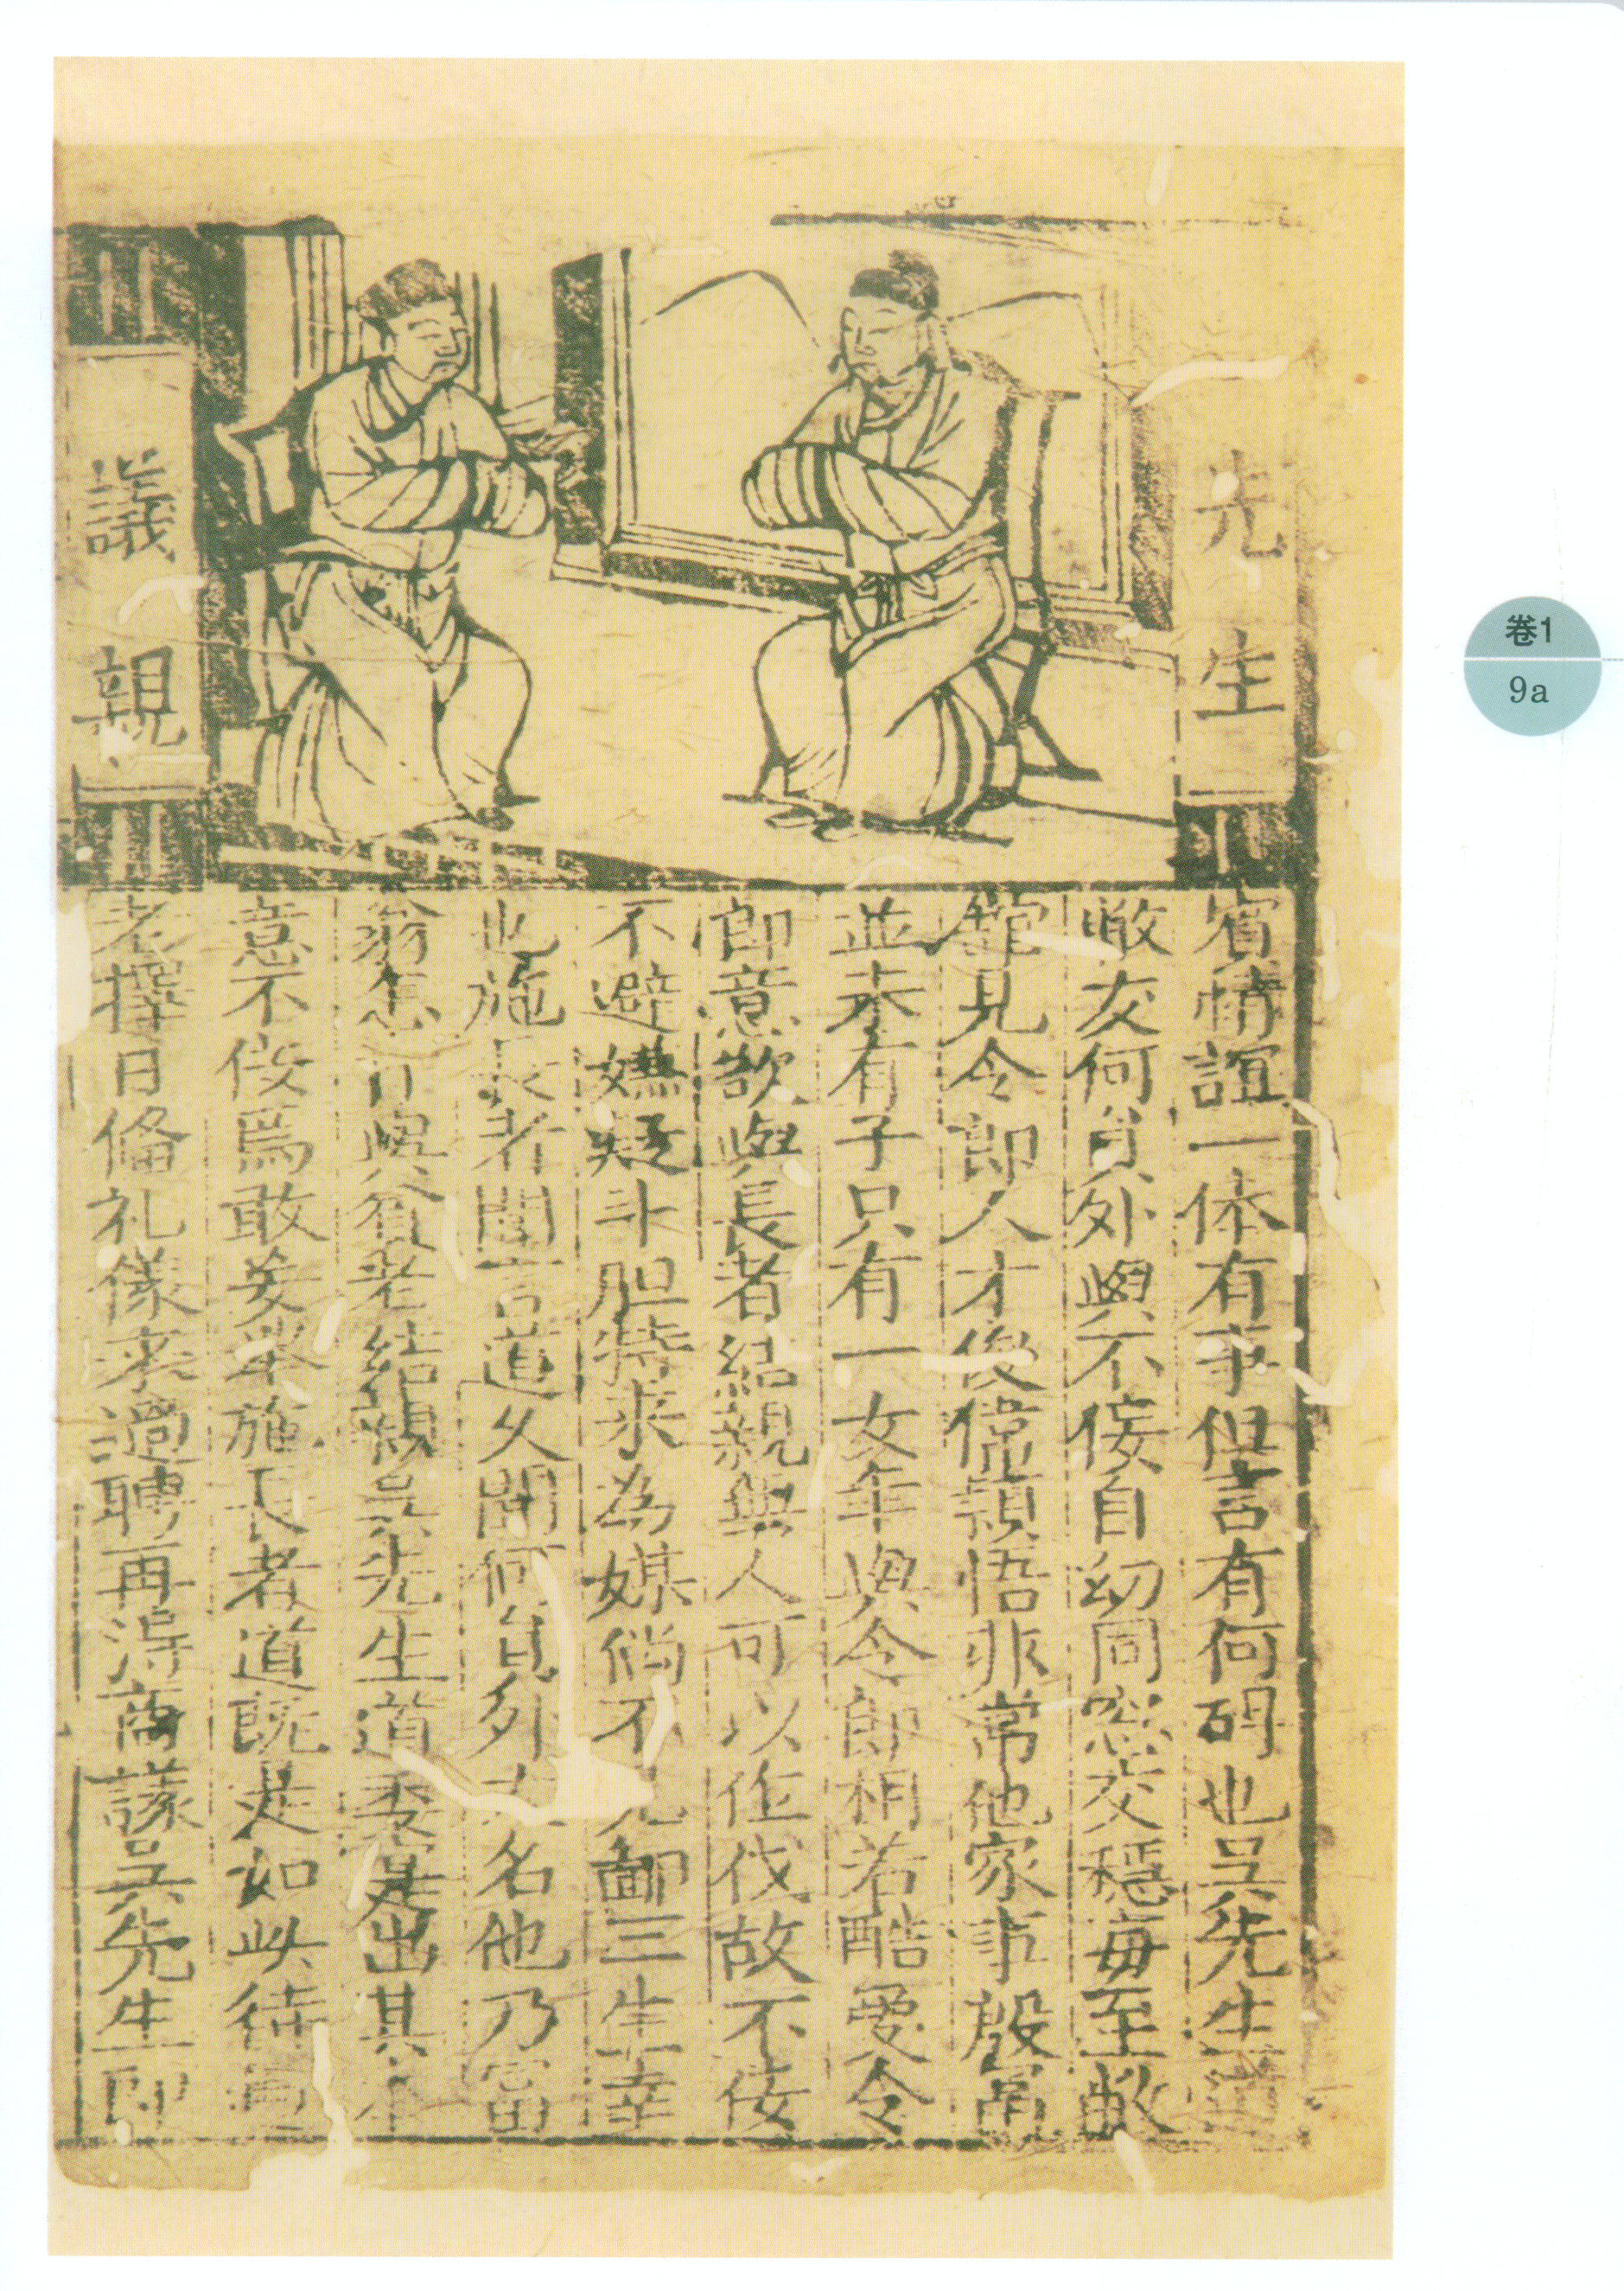 先生
議親
賓情誼一体有事但言有何碍也吳先生道
敝友何員外與不佞自幼同窓交穩每至敝
館見令郎人才俊偉穎悟非常他家事殷富
並未有子只有一女年與令郎相若酷愛令
郎意欲與長者結親無人可以作伐故不佞
不避嫌疑斗胆特来為媒倘不 鄙三生幸
也施長者聞言道久聞何員外大名他乃富
翁怎 與貧老結親吳先生道委是出其本
意不佞焉敢妄舉施長者道既是如此待
老擇日偹礼儀来過聘再得商議吳先生即
卷1
9a